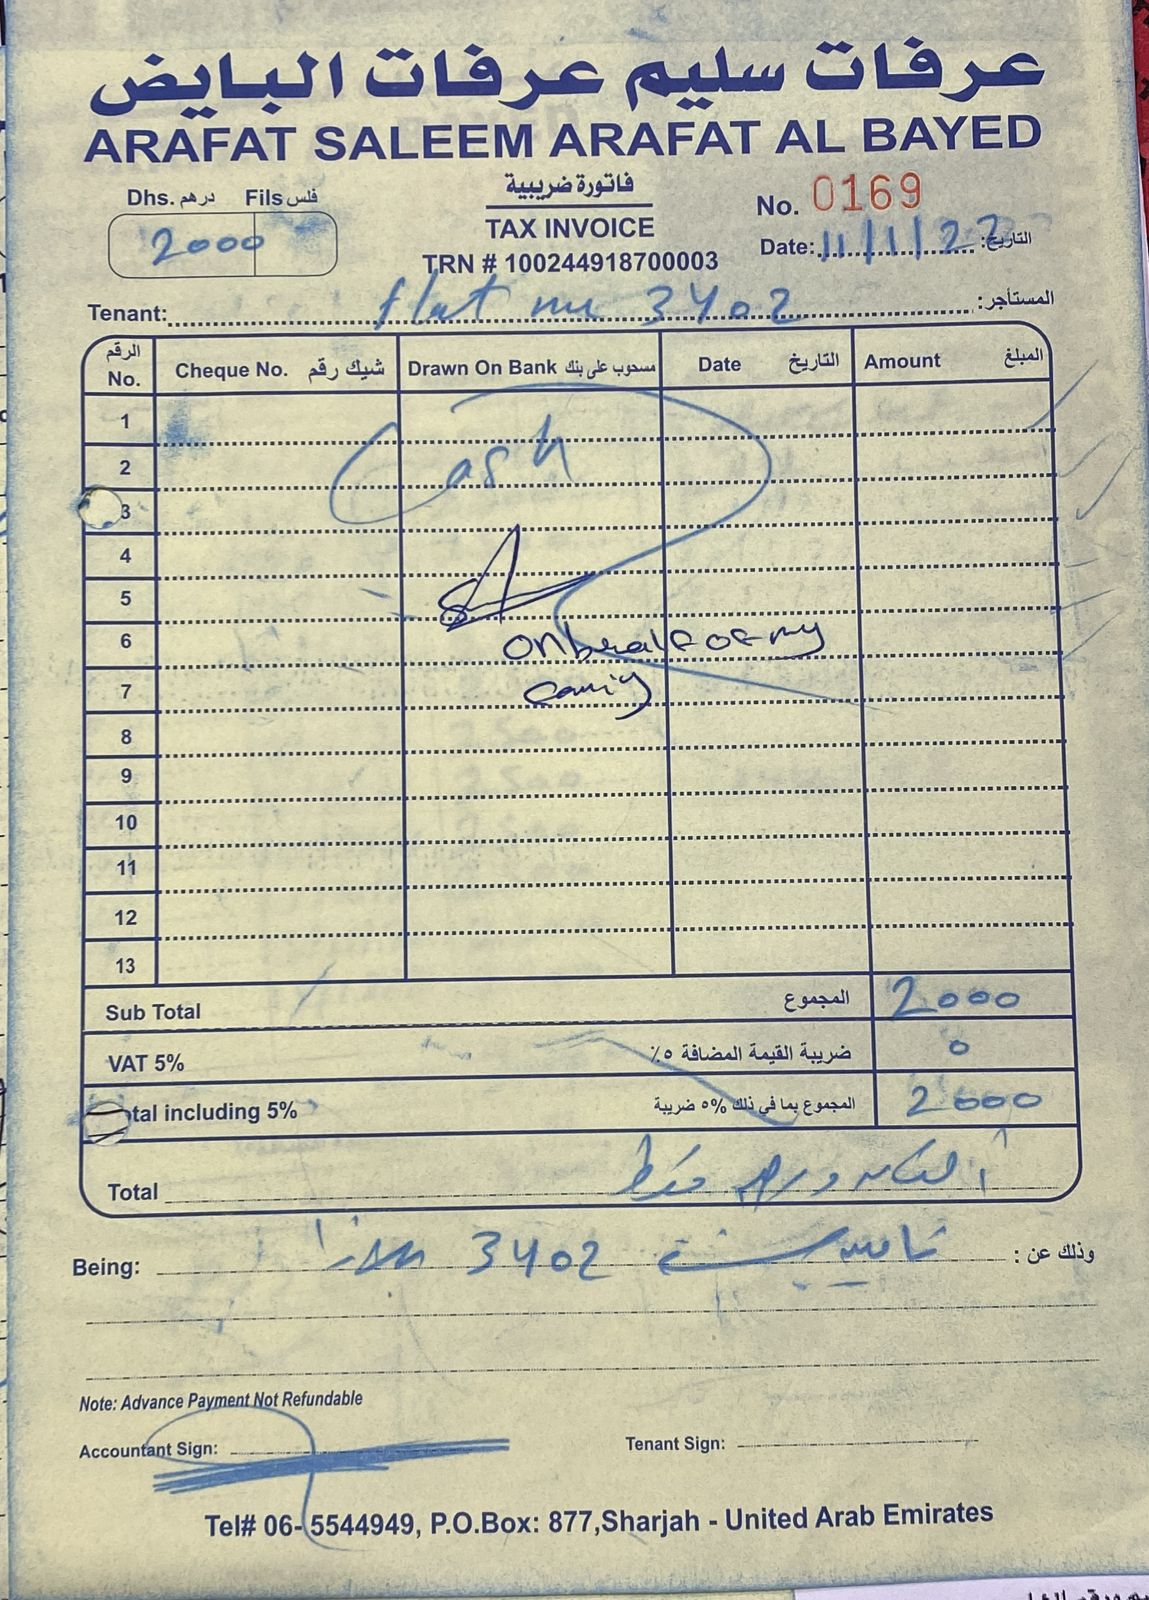 عرفات سليم عرفات البايض
ARAFAT SALEEM ARAFAT AL BAYED
Dhs. درهم Fils فلس
2000
فاتورة ضريبية
TAX INVOICE
TRN # 100244918700003
No. 0169
Date: 11/1/22 التاريخ:
Tenant: flat no 3402 المستأجر:
الرقم No. Cheque No. شيك رقم Drawn On Bank مسحوب على بنك Date التاريخ Amount المبلغ
1
2 Cash
3
4
5
6 on behalf of my
7
8
9
10
11
12
13
Sub Total المجموع 2000
VAT 5% ضريبة القيمة المضافة ٥٪ 0
tal including 5% المجموع بما في ذلك %٥ ضريبة 2000
Total درهم فقط
Being: تامين 3402 وذلك عن :
Note: Advance Payment Not Refundable
Accountant Sign: Tenant Sign:
Tel# 06- 5544949, P.O.Box: 877,Sharjah - United Arab Emirates